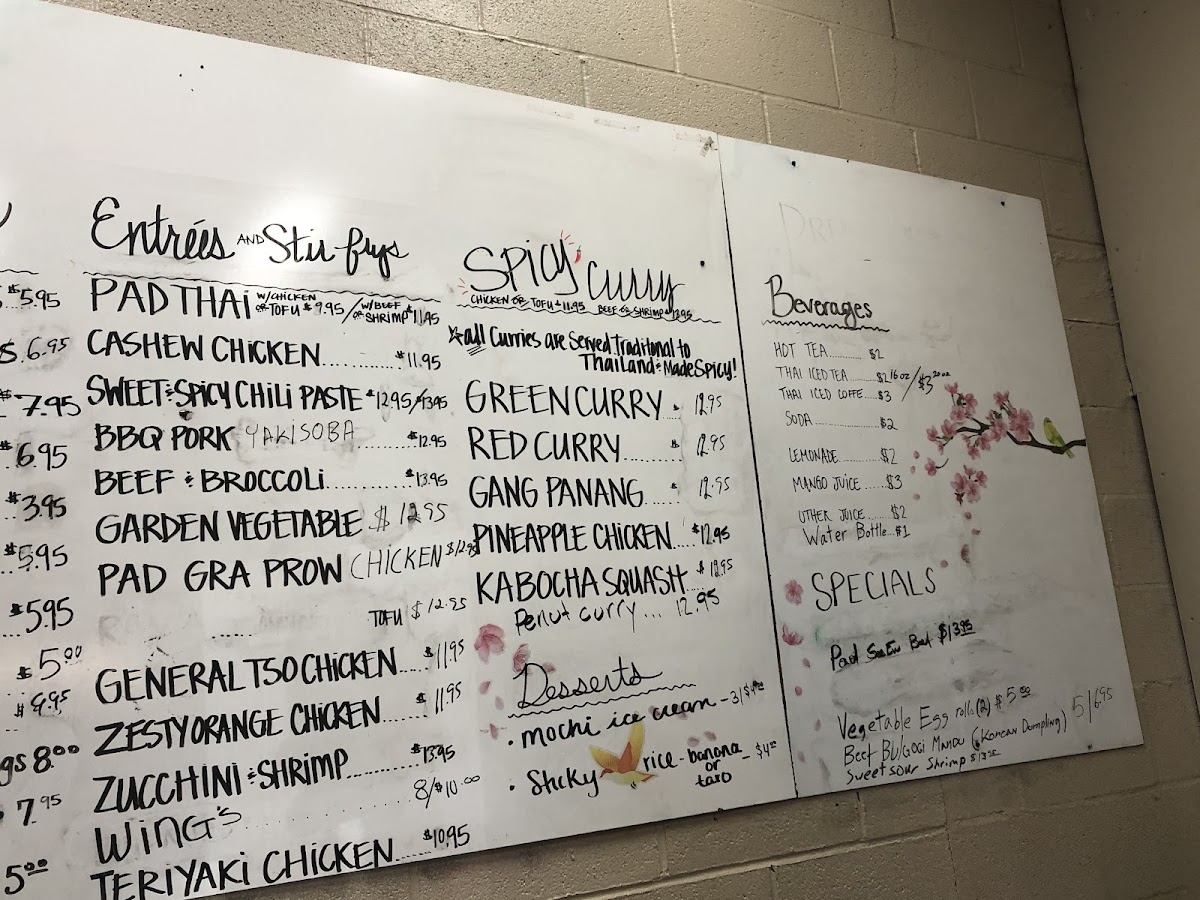 $5.95
6.95
$7.95
6.95
$3.95
$5.95
$5.95
$5.00
8.00
7.95
5.00
Entrées AND Stir-frys
PAD THAI W/CHICKEN OR TOFU $9.95 / W/BEEF OR SHRIMP $11.95
CASHEW CHICKEN............ $11.95
SWEET & SPICY CHILI PASTE $12.95/$13.95
BBQ PORK YAKISOBA ......$12.95
BEEF & BROCCOLI............ $13.95
GARDEN VEGETABLE $12.95
PAD GRA PROW CHICKEN $12.95
TOFU $12.95
GENERAL TSO CHICKEN.... $11.95
ZESTY ORANGE CHICKEN.... $11.95
ZUCCHINI & SHRIMP.......... $13.95
WING'S ............ 8/$10.00
TERIYAKI CHICKEN..... $10.95
SPICY Curry
CHICKEN OR TOFU $11.95 BEEF OR SHRIMP $12.95
☆all Curries are Served Traditonal to
Thailand & Made Spicy!
GREEN CURRY. $ 12.95
RED CURRY......... $ 12.95
GANG PANANG..... $ 12.95
PINEAPPLE CHICKEN....$12.95
KABOCHA SQUASH.. $12.95
Penut curry... 12.95
Desserts
• mochi ice cream - 3/$4.00
• Sticky rice - banana or taro - $4.00
Beverages
HOT TEA.......... $2
THAI ICED TEA....... $2 16oz / $3 20oz
THAI ICED COFFE...$3
SODA............... $2
LEMONADE..........$2
MANGO JUICE......$3
OTHER JUICE.......$2
Water Bottle...$1
SPECIALS
Pad $13.95
Vegetable Egg rolls (2) $5.00
Beef BulGOGI MANDU (Korean Dumpling) 5/6.95
Sweet sour Shrimp $13.95